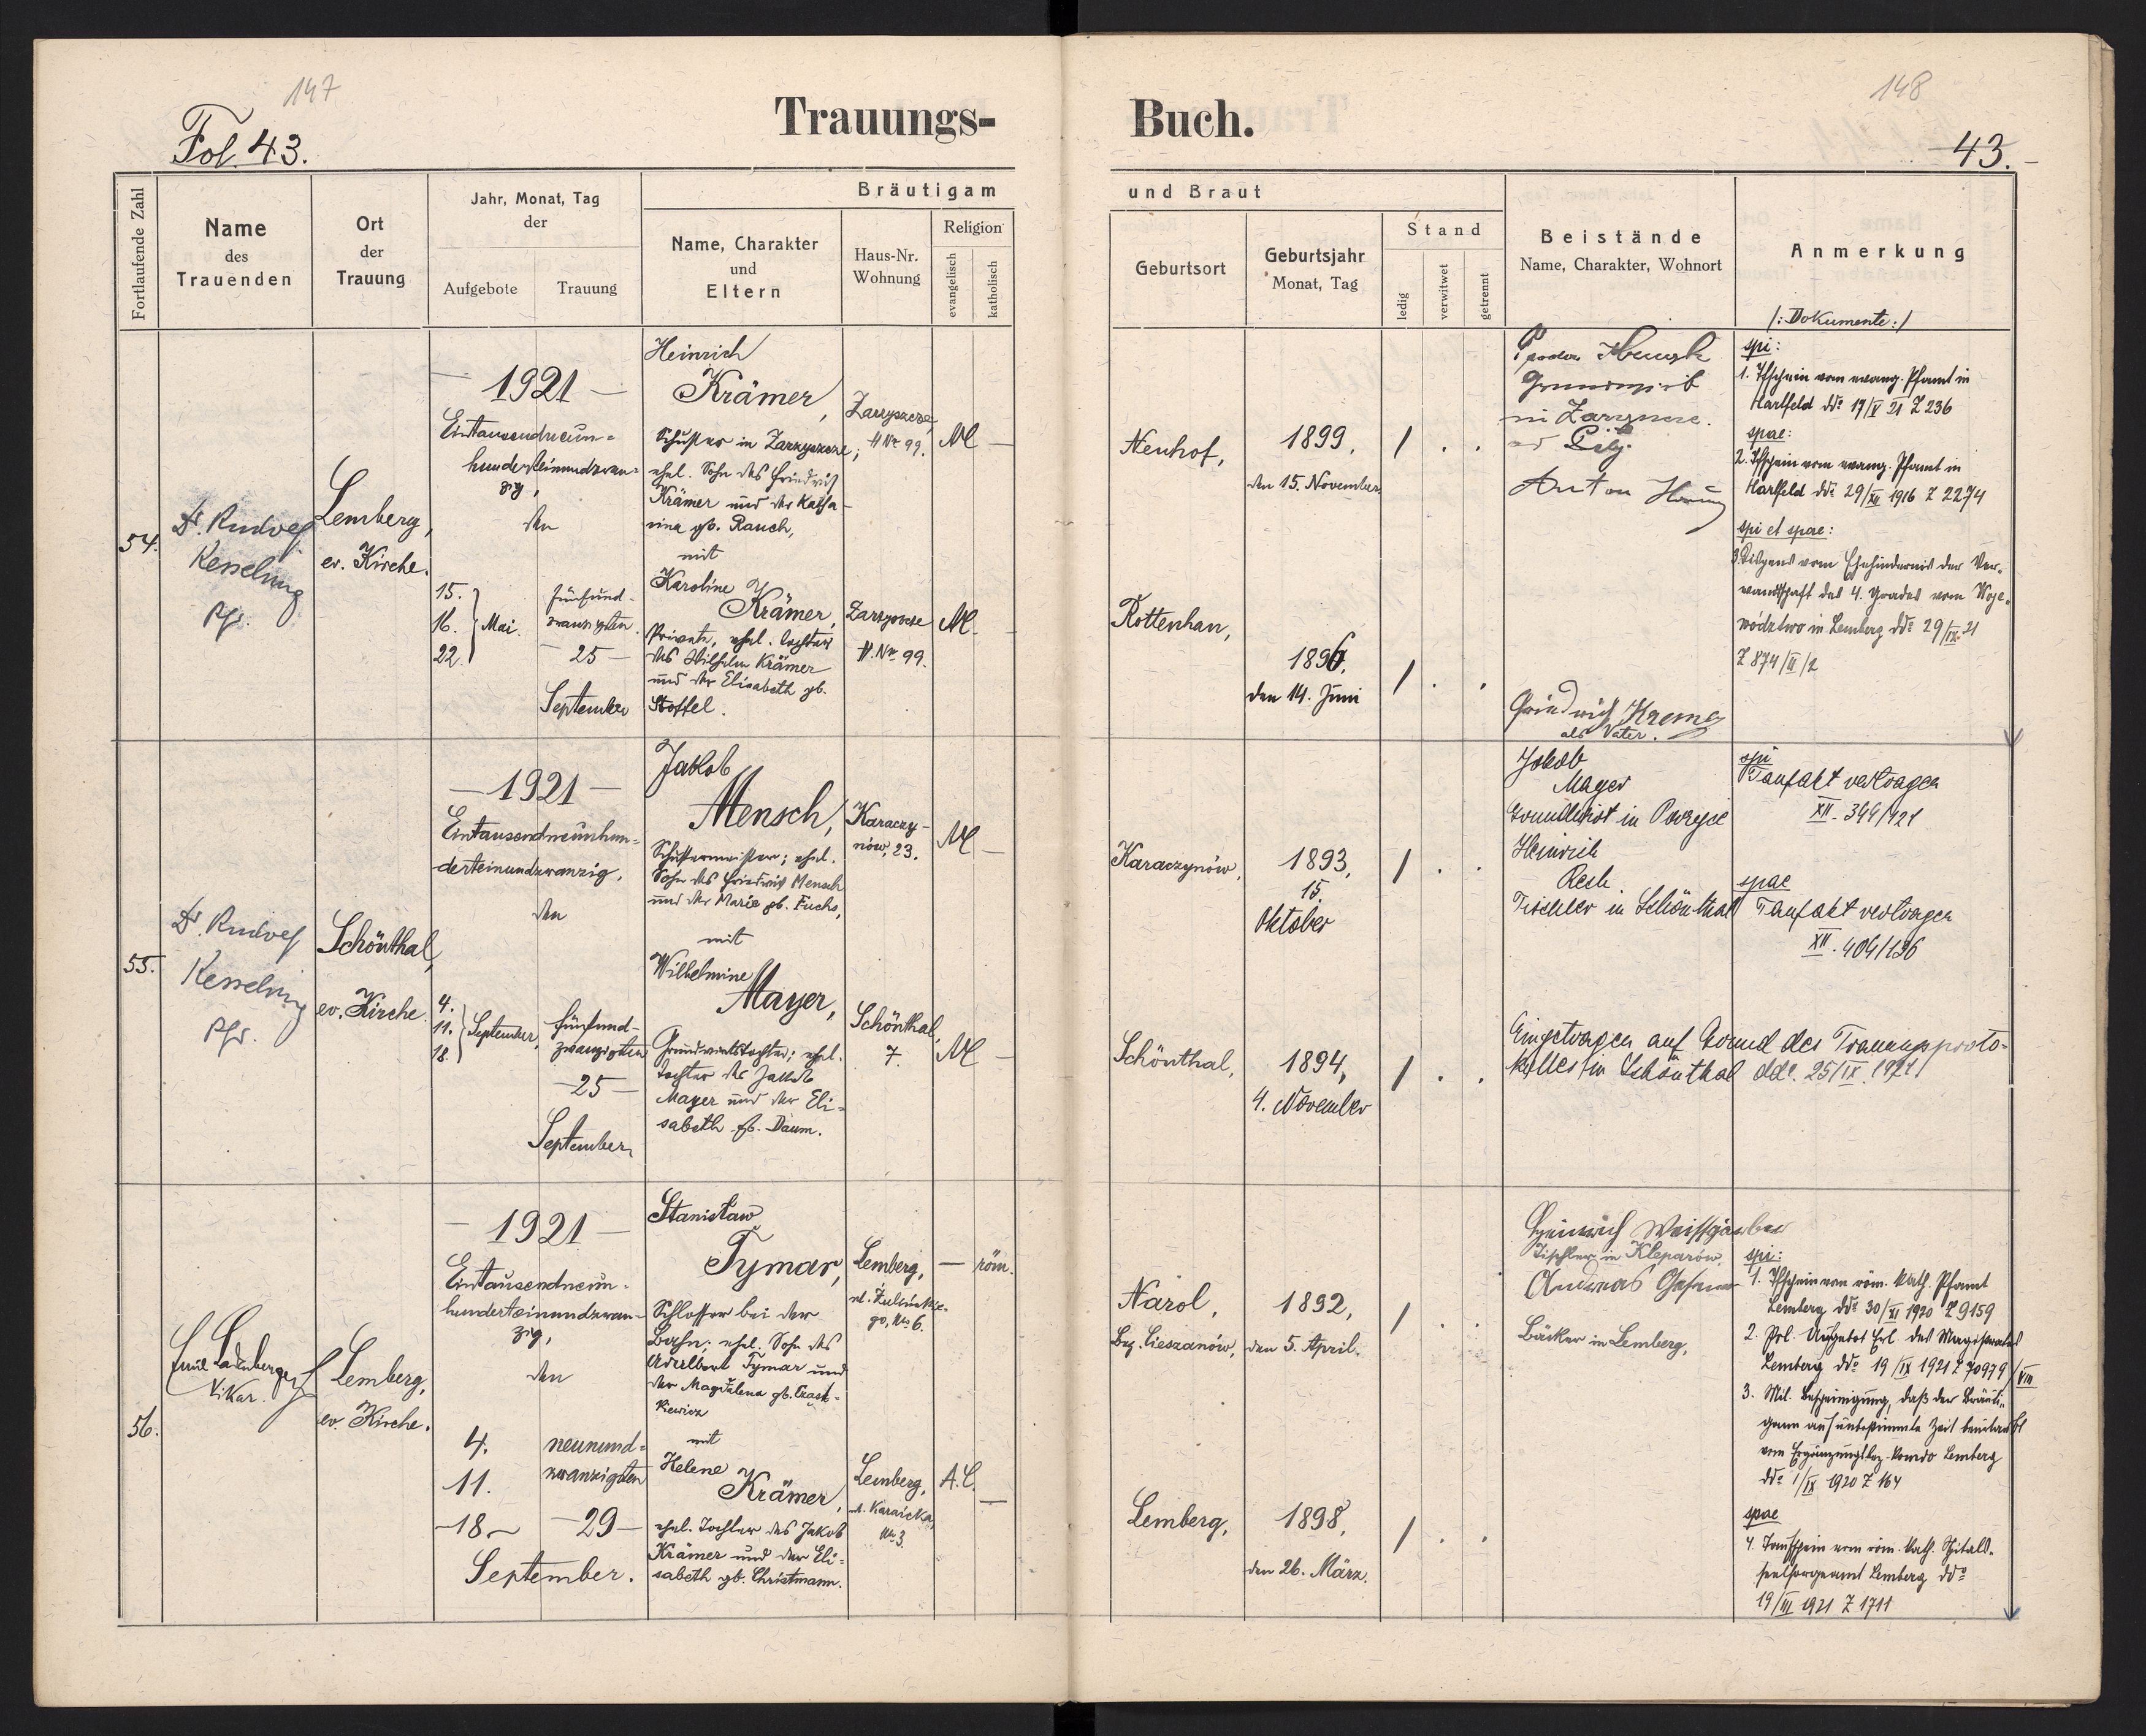 147
Fol. 43.
Trauungs-
Fortlaufende Zahl
Name
des
Trauenden
Ort
der
Trauung
Jahr, Monat, Tag
der
Aufgebote
Trauung
Bräutigam
Name, Charakter
und
Eltern
Haus-Nr.
Wohnung
Religion
evangelisch
katholisch
54.
Dr. Rudolf
Kesselring
Pfr.
Lemberg,
ev. Kirche.
— 1921 —
Eintausendneun-
hunderteinundzwan-
zig,
den
15.
16. Mai.
22.
fünfund-
zwanzigsten
— 25 —
September
Heinrich
Krämer,
Schuster in Zarzyszcze;
ehel. Sohn des Friedrich
Krämer und der Katha-
rina gb. Rauch,
mit
Karoline
Krämer,
Private, ehel. Tochter
des Wilhelm Krämer
und der Elisabeth gb.
Stoffel.
H Nr. 99.
H. Nr. 99.
55.
Dr. Rudolf
Kesselring
Pfr.
Schönthal,
ev. Kirche
— 1921 —
Eintausendneunhun-
derteinundzwanzig,
den
4.
11. September,
18.
fünfund-
zwanzigsten
— 25 —
September
Jakob
Mensch,
Schustermeister; ehel.
Sohn des Friedrich Mensch
und der Marie gb. Fuchs,
mit
Wilhelmine
Mayer,
Grundwirtstochter; ehel.
Tochter des Jakob
Mayer und der Eli-
sabeth gb. Daum.
Karaczy-
nów, 23.
Schönthal,
7.
56.
Emil Ladenberger
Vikar.
Lemberg,
ev. Kirche.
— 1921 —
Eintausendneun-
hunderteinundzwan-
zig,
den
4.
11.
— 18 —
neunund-
zwanzigsten
— 29 —
September.
Stanisław
Tymar,
Schlosser bei der
Bahn; ehel. Sohn des
Adalbert Tymar und
der Magdalena gb.
mit
Helene
Krämer,
ehel. Tochter des Jakob
Krämer und der Eli-
sabeth gb. Christmann.
Lemberg,
go, No 6.
— röm.
Lemberg,
No 3.
A.C.
—
148
Buch.
43.
und Braut
Geburtsort
Geburtsjahr
Monat, Tag
Stand
ledig
verwitwet
getrennt
Beistände
Name, Charakter, Wohnort
Anmerkung
/: Dokumente :/
Neuhof,
1899,
den 15. November.
/ . .
Rottenhan,
1896,
den 14. Juni
/ . .
Anton
Friedrich
als Vater.
spi:
1. Tfschein vom evang. Pfamt in
Hartfeld ddo 17/V 21 Z 236
spae:
2. Tfschein vom evang. Pfamt in
Hartfeld ddo 29/XII 1916 Z 2274
spi et spae:
3. Dispens vom Ehehindernis der Ver-
wandtschaft des 4. Grades vom Woje-
wództwo in Lemberg ddo 29/IX 21
Z 874/II/2
Karaczynów,
1893,
15.
Oktober
/ . .
Schönthal,
1894,
4. November
/ . .
Jakob
Mayer
Grundwirt in
Heinrich
Resch
Tischler in Schönthal
spi
Taufakt vertragen
XII. 344/921
spae
Taufakt vertragen
XII. 404/136
Eingetragen auf Grund des Trauungsproto-
kolles in Schönthal ddo. 25/IX. 1921
Narol,
Bez. Cieszanów,
1892,
den 5. April.
/ . .
Lemberg,
1898,
den 26. März.
/ . .
Heinrich Weissgärber
Tischler in Kleparów,
Andreas
Bäcker in Lemberg,
spi:
1. Tfschein vom röm. kath. Pfamt
Lemberg ddo 30/XI 1920 Z 9159
2. Pol. Aufgebot Erl des Magistrates
Lemberg ddo 19/IX 1921 Z 70979/VIII
3. Mil. Bescheinigung, daß der Bräuti-
gam auf unbestimmte Zeit beurlaubt
vom Ergänzungsbez. komdo Lemberg
ddo 1/IX 1920 Z 164
spae
4. Taufschein vom röm. kath. Spitals-
seelsorgeamt Lemberg ddo
19/III 1921 Z 1711